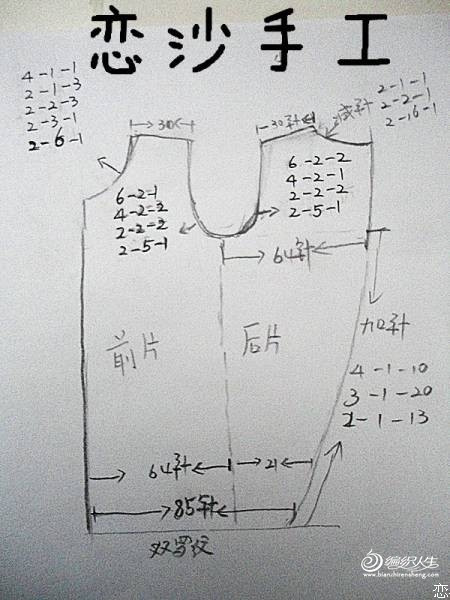 恋沙手工
4-1-1
2-1-3
2-2-3
2-3-1
2-6-1
30
30针
减针
2-1-1
2-2-1
2-16-1
6-2-1
4-2-2
2-2-2
2-5-1
6-2-2
4-2-1
2-2-2
2-5-1
64针
前片
后片
加针
4-1-10
3-1-20
2-1-13
64针
21
85针
双罗纹
编织人生
www.bianzhirensheng.com
恋